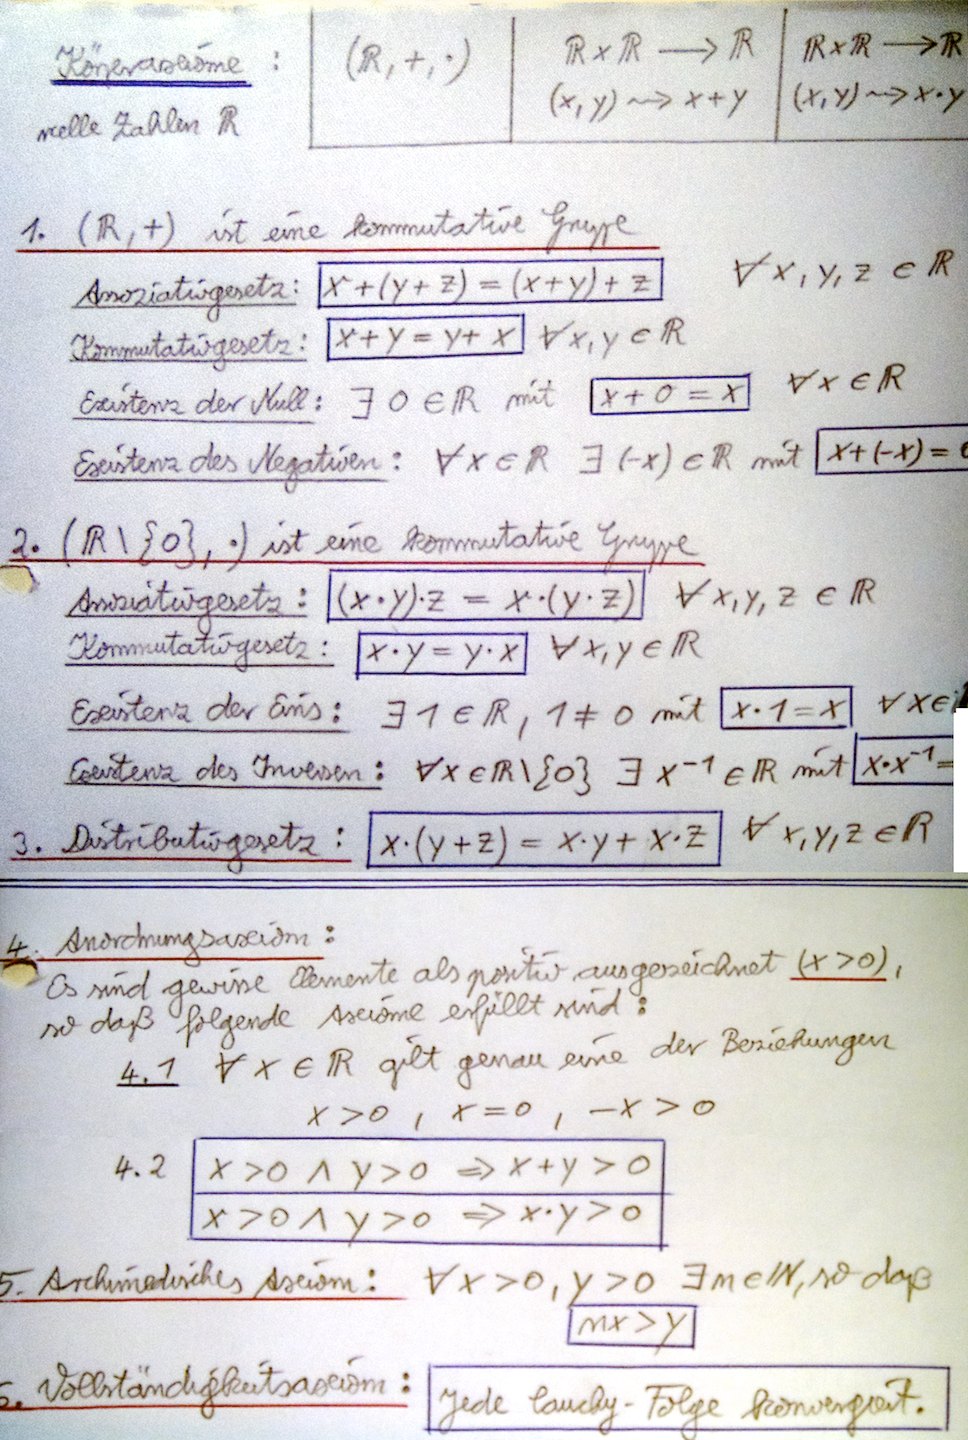 Körperaxiome :
(ℝ, +, ·)
ℝ×ℝ ⟶ ℝ
ℝ×ℝ ⟶ ℝ
(x, y) ⇝ x+y
(x, y) ⇝ x·y
reelle Zahlen ℝ
1. (ℝ, +) ist eine kommutative Gruppe
Assoziativgesetz: x+(y+z) = (x+y)+z ∀ x, y, z ∈ ℝ
Kommutativgesetz: x+y = y+x ∀ x, y ∈ ℝ
Existenz der Null: ∃ 0 ∈ ℝ mit x+0 = x ∀ x ∈ ℝ
Existenz des Negativen: ∀ x ∈ ℝ ∃ (-x) ∈ ℝ mit x+(-x) = 0
2. (ℝ \ {0}, ·) ist eine kommutative Gruppe
Assoziativgesetz: (x·y)·z = x·(y·z) ∀ x, y, z ∈ ℝ
Kommutativgesetz: x·y = y·x ∀ x, y ∈ ℝ
Existenz der Eins: ∃ 1 ∈ ℝ, 1 ≠ 0 mit x·1 = x ∀ x ∈
Existenz des Inversen: ∀ x ∈ ℝ \ {0} ∃ x⁻¹ ∈ ℝ mit x·x⁻¹ =
3. Distributivgesetz: x·(y+z) = x·y + x·z ∀ x, y, z ∈ ℝ
4. Anordnungsaxiom:
Es sind gewisse Elemente als positiv ausgezeichnet (x > 0),
so daß folgende Axiome erfüllt sind:
4.1 ∀ x ∈ ℝ gilt genau eine der Beziehungen
x > 0 , x = 0 , -x > 0
4.2 x > 0 ∧ y > 0 ⇒ x+y > 0
x > 0 ∧ y > 0 ⇒ x·y > 0
5. Archimedisches Axiom: ∀ x > 0, y > 0 ∃ n ∈ ℕ, so daß
nx > y
6. Vollständigkeitsaxiom: Jede Cauchy-Folge konvergiert.